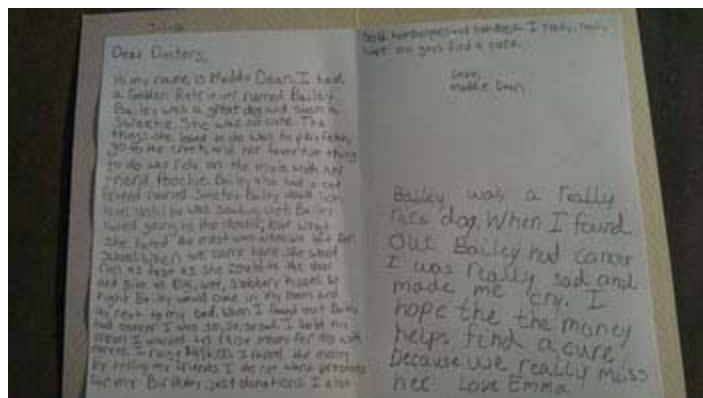 Dear Doctors,
Hi my name is Maddie Dean. I had
a Golden Retriever named Bailey.
Bailey was a great dog and such a
sweetie. She was so cute. The
things she loved to do was to play fetch,
go to the creek and her favorite thing
to do was ride on the mule with her
friend Poochie. Bailey also had a cat
friend named Bailey would lick
him until he was soaking wet. Bailey
hated going to the doctor, but what
she hated the most was when we left for
school. When we came home she would
run as fast as she could to the door
and give us big, wet, slobbery kisses. At
night Bailey would come in my room and
lay next to my bed. When I found out Bailey
had cancer I was so, so, so sad. I told my
mom I wanted to raise money for dog with
cancer. I raised the money
by telling my friends I do not want presents
for my Birthday, just donations. I also
sold hamburgers and hot dogs. I really, really
hope you guys find a cure.
Love,
Maddie Dean
Bailey was a really
nice dog. When I found
out Bailey had cancer
I was really sad and
made me cry. I
hope the the money
helps find a cure
because we really miss
her. Love Emma